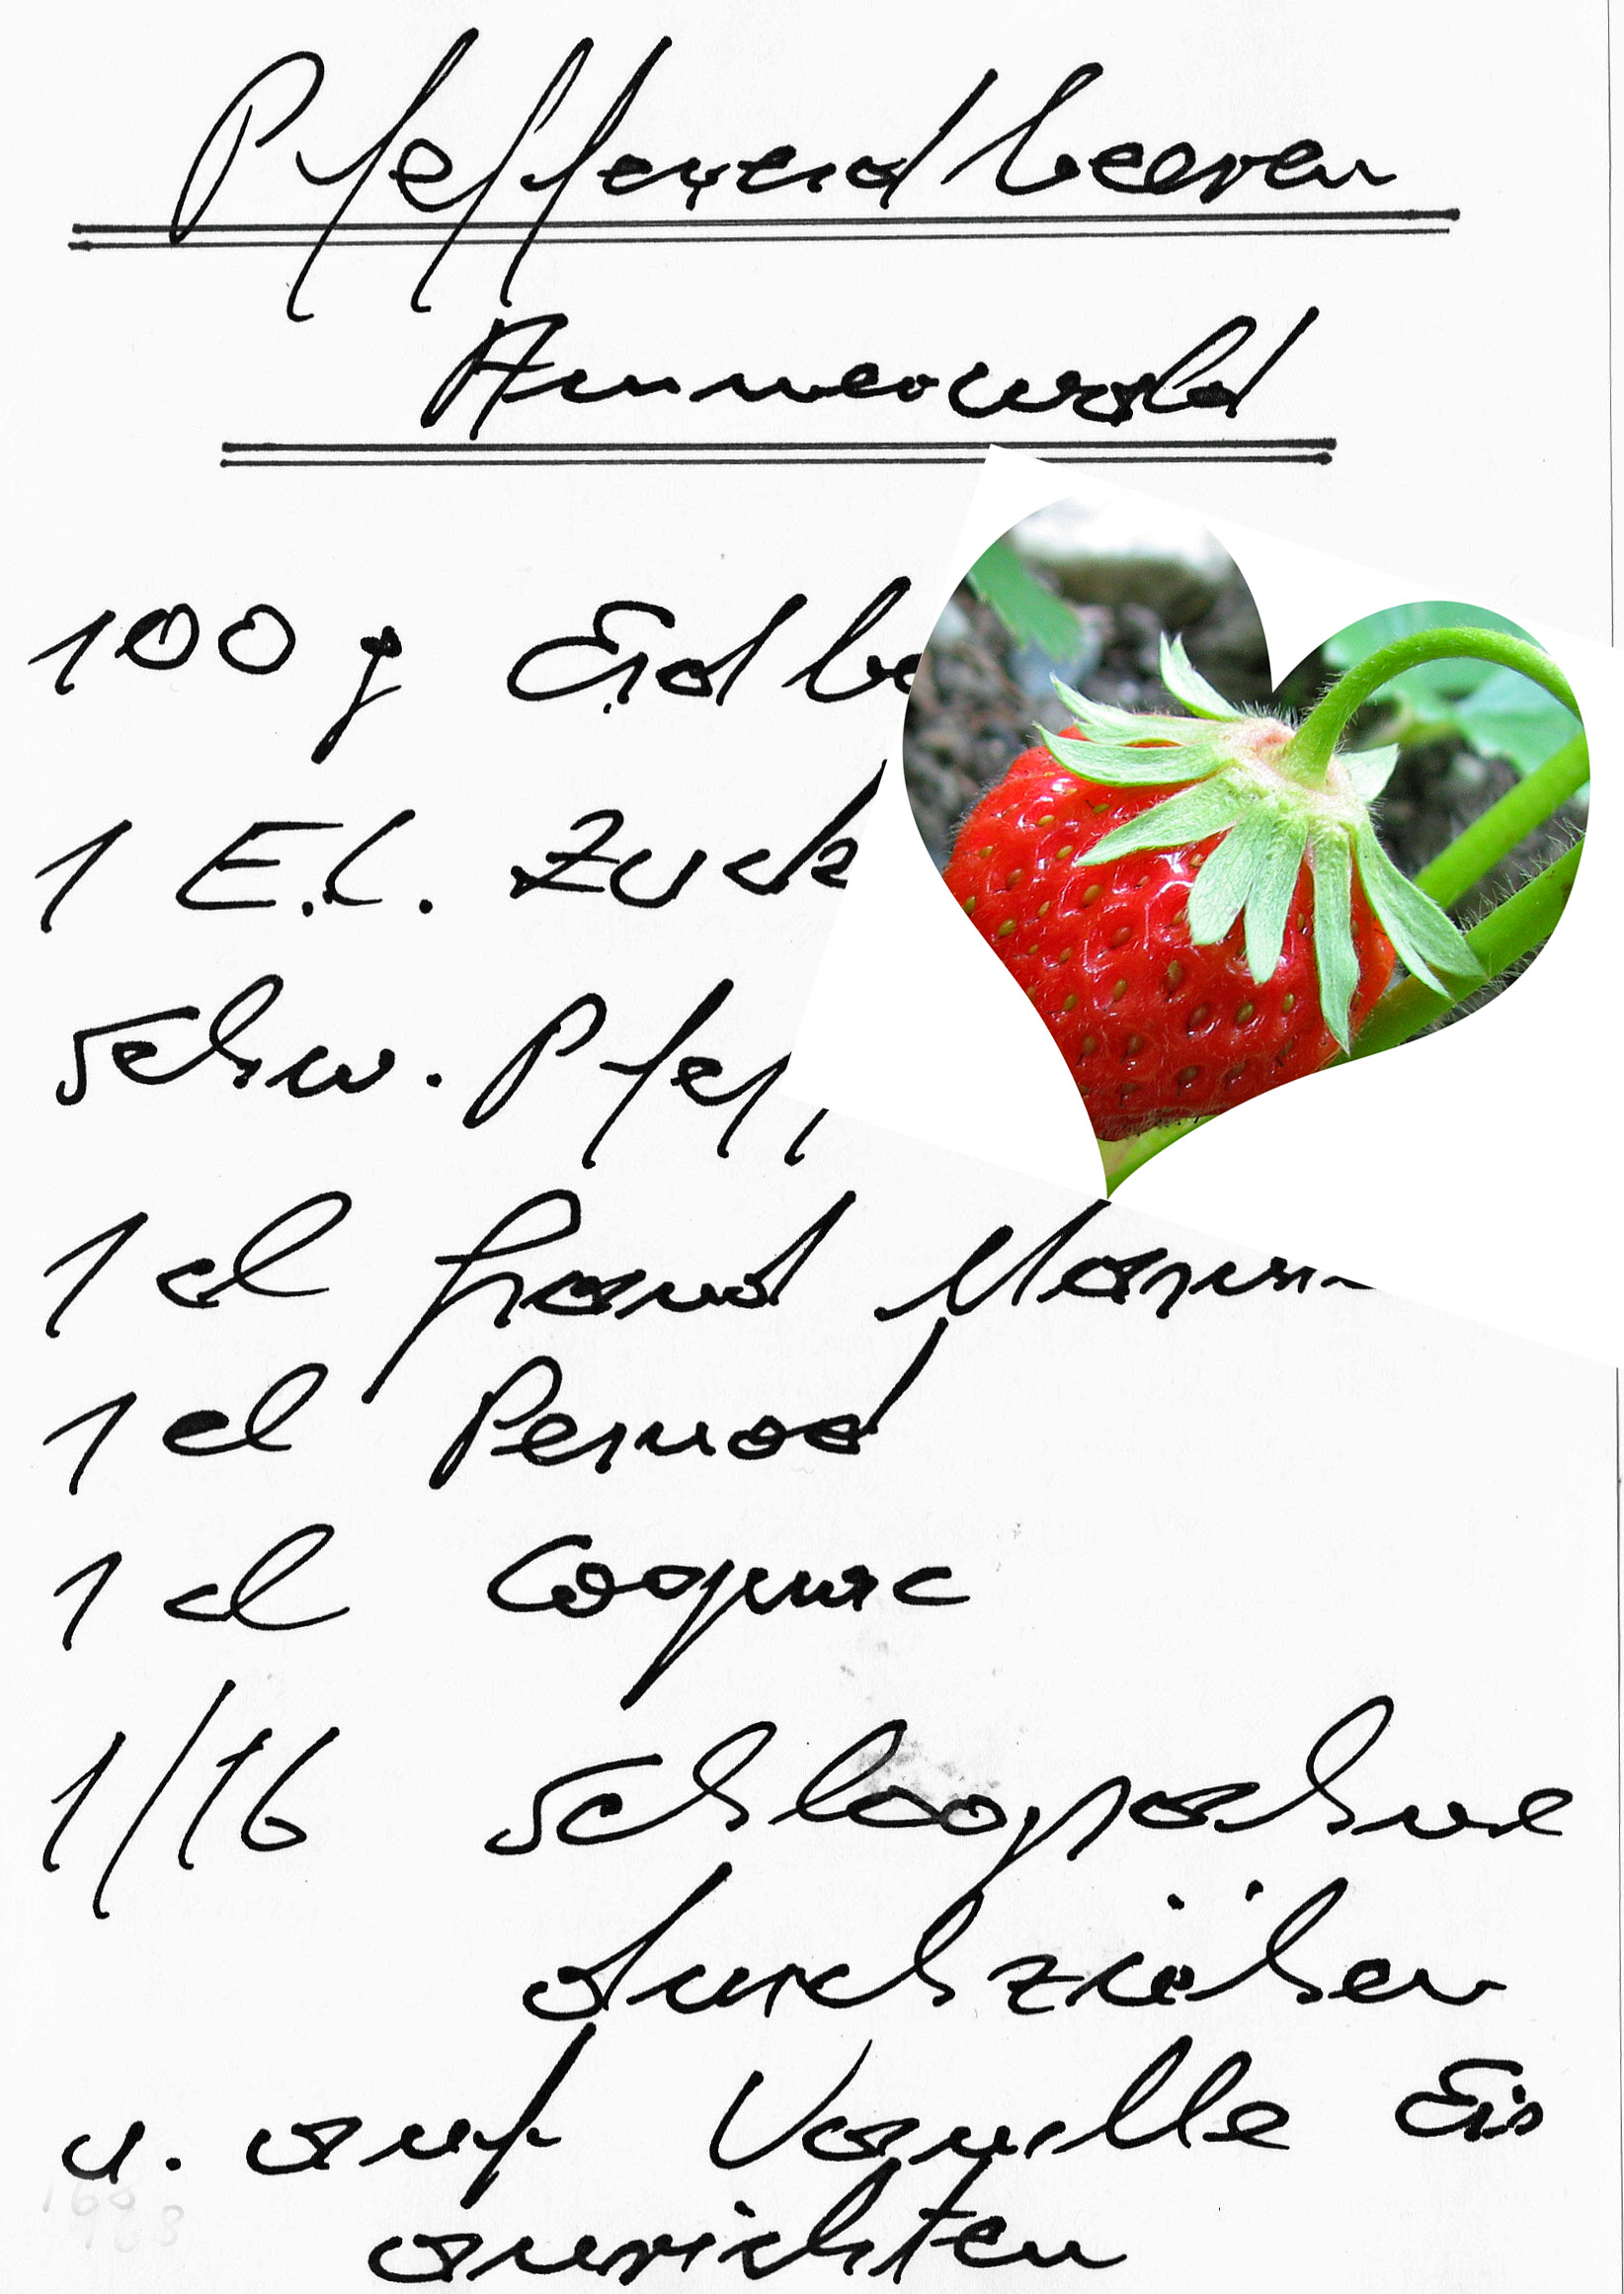 Pfeffererdbeeren
Ammerwald
100 g Erdbe
1 E.l. Zuck
schw. Pfef
1 cl Grand Marni
1 cl Pernod
1 cl Cognac
1/16 Schlagsahne
durchziehen
u. auf Vanille Eis
anrichten